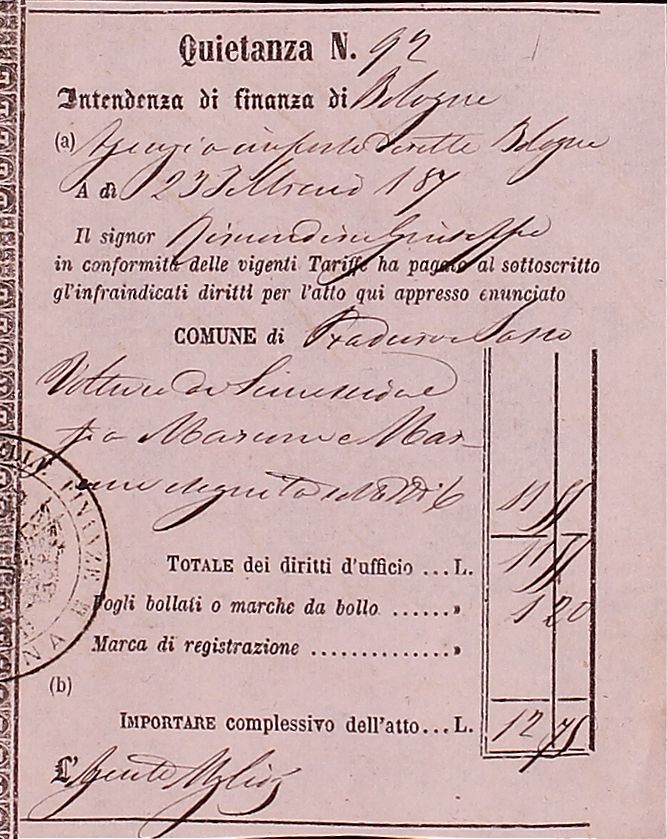 Quietanza N. 92
Intendenza di finanza di Bologna
(a) Agenzia imposte Dirette Bologna
A dì 23 Febbraio 187
Il signor Giuseppe
in conformità delle vigenti Tariffe ha pagato al sottoscritto
gl'infraindicati diritti per l'atto qui appresso enunciato
COMUNE di Praduro e Sasso
Volture di Successione
fra
11 55
TOTALE dei diritti d'ufficio ... L. 11 55
Fogli bollati o marche da bollo ...... » 1 20
Marca di registrazione .............. »
(b)
IMPORTARE complessivo dell'atto... L. 12 75
L'Agente
LLE FINANZE